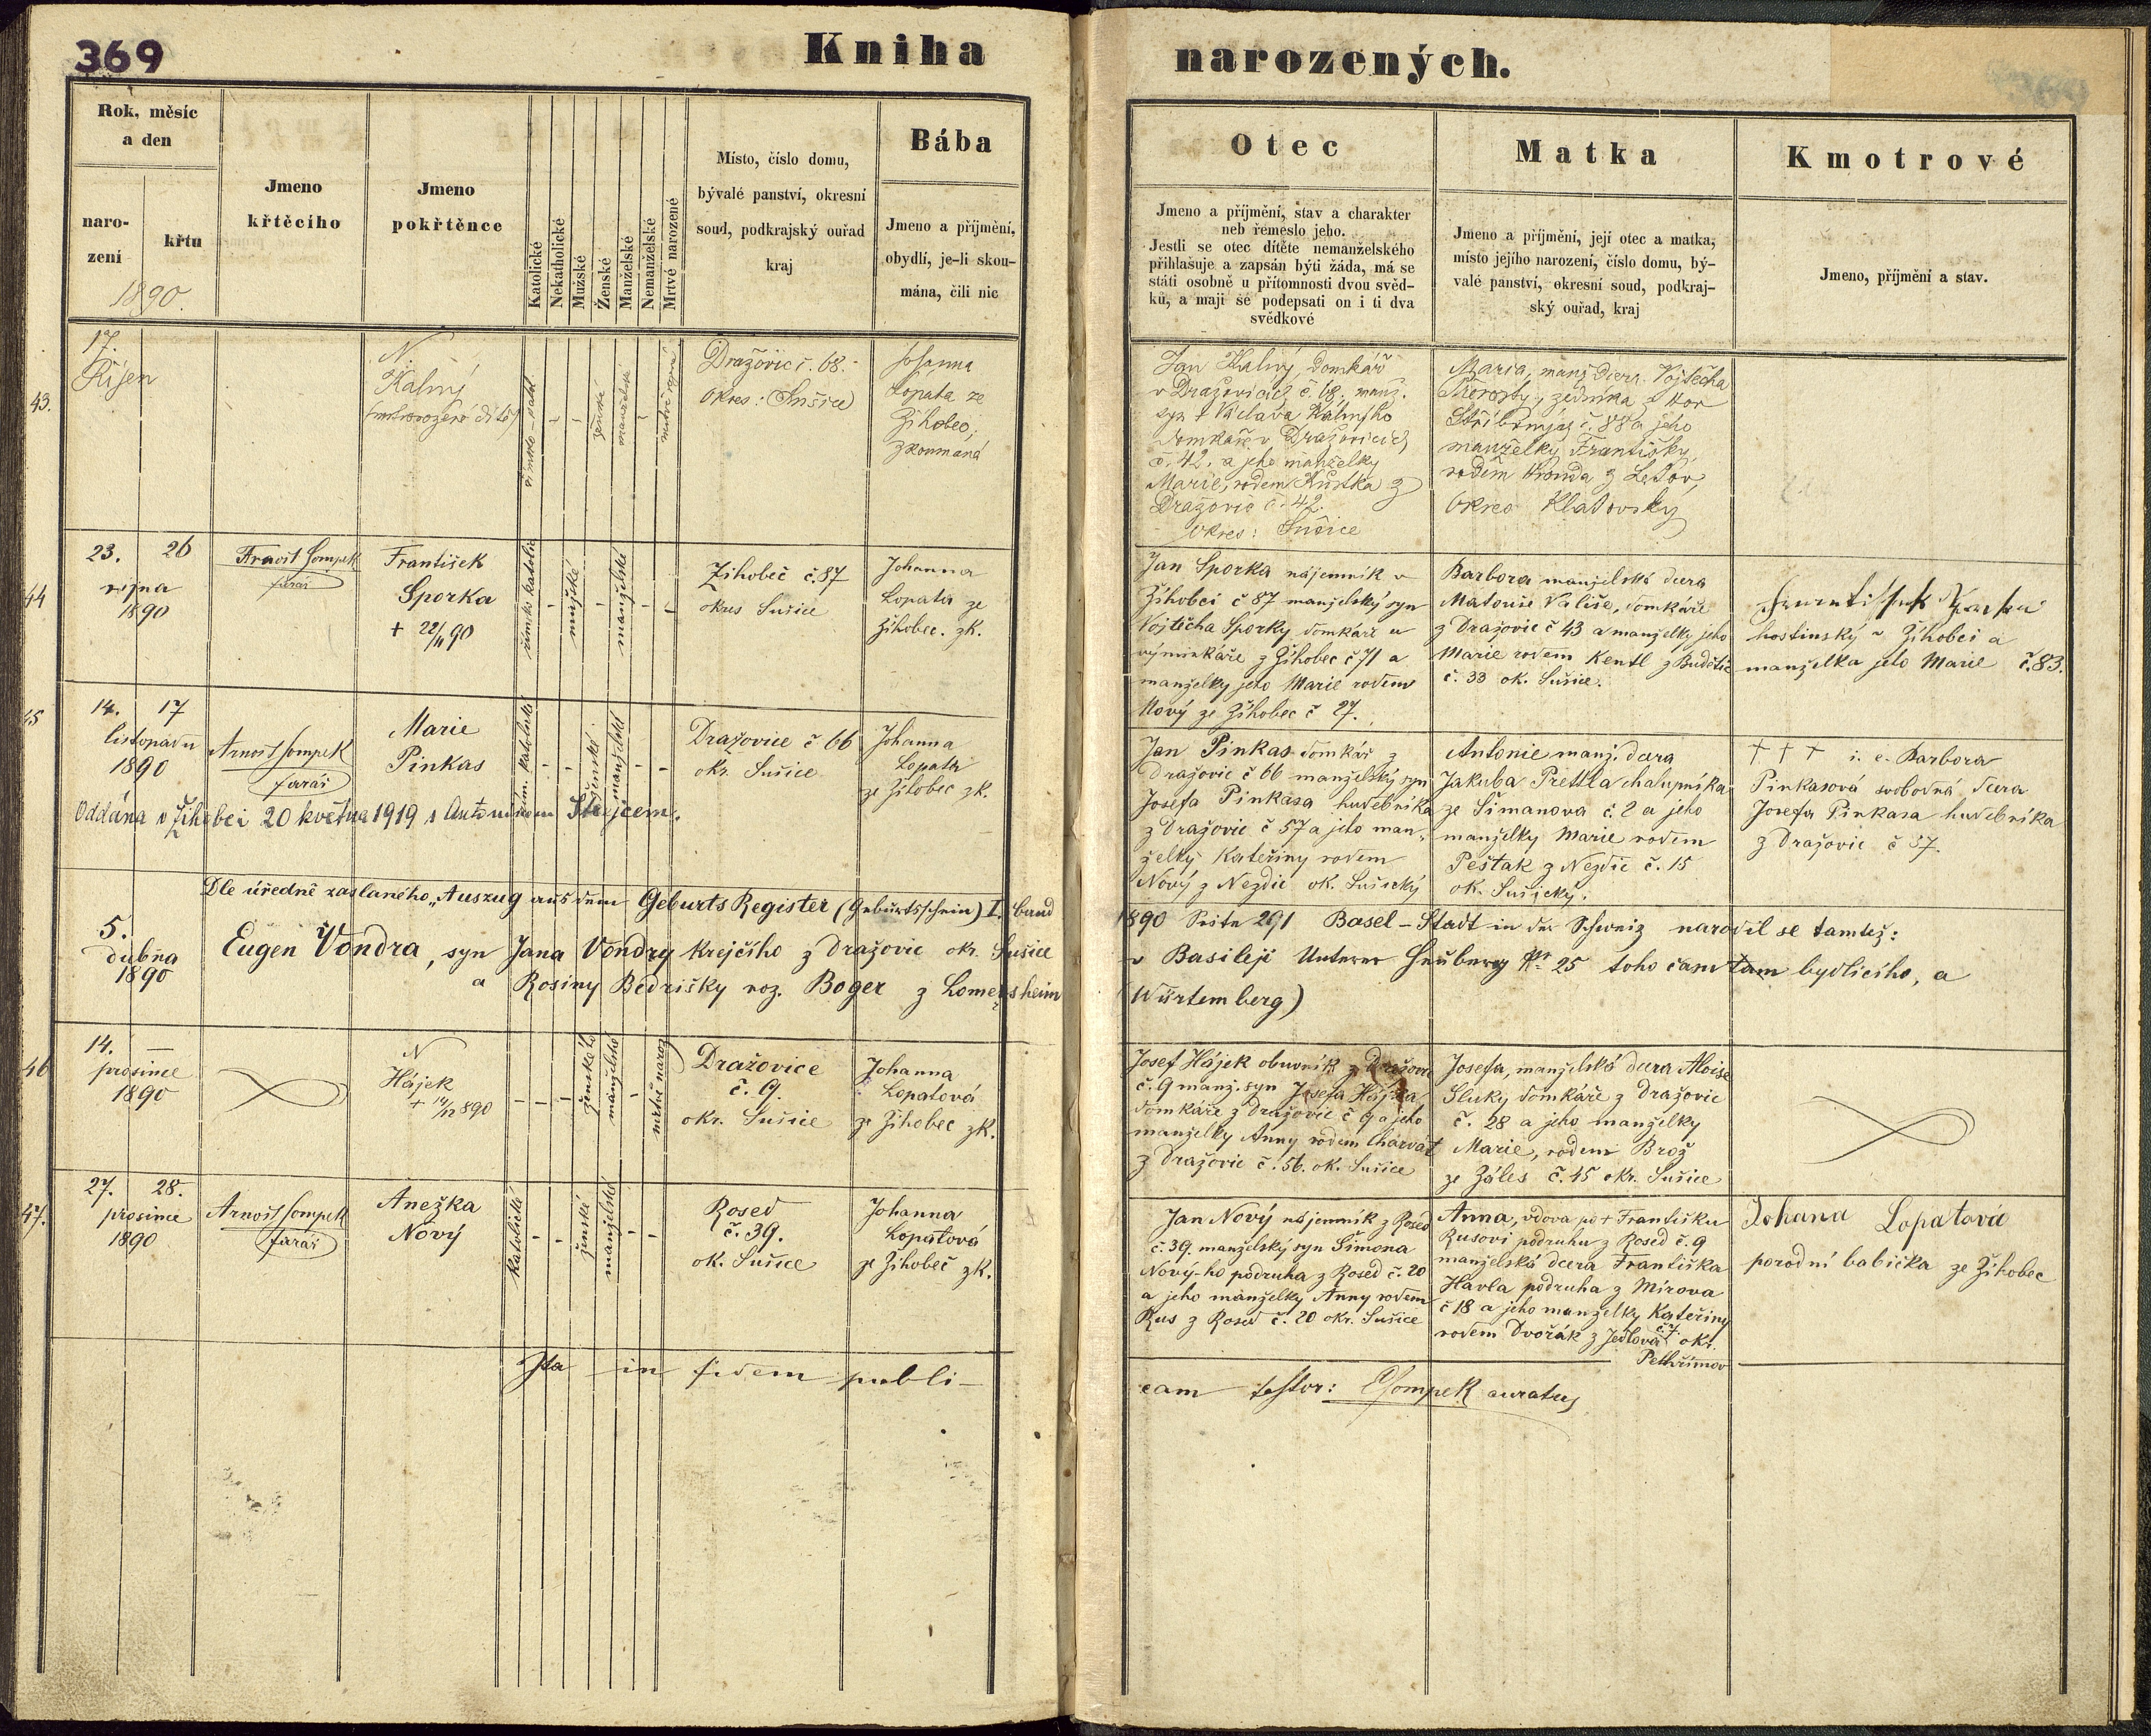 369
Kniha
narozených.
Rok, měsíc
a den
naro-
zení
křtu
1890.
Jmeno
křtěcího
Jmeno
pokřtěnce
Katolické
Nekatholické
Mužské
Ženské
Manželské
Nemanželské
Mrtvé narozené
Místo, číslo domu,
bývalé panství, okresní
soud, podkrajský ouřad
kraj
Bába
Jmeno a příjmění,
obydlí, je-li skou-
mána, čili nic
Otec
Jmeno a příjmění, stav a charakter
neb řemeslo jeho.
Jestli se otec dítěte nemanželského
přihlašuje a zapsán býti žáda, má se
státi osobně u přítomnosti dvou svěd-
ků, a mají se podepsati on i ti dva
svědkové
Matka
Jmeno a příjmění, její otec a matka,
místo jejího narození, číslo domu, bý-
valé panství, okresní soud, podkraj-
ský ouřad, kraj
Kmotrové
Jmeno, příjmění a stav.
43.
17.
Říjen
N.
Kalný
ženské
manželské
Dražovic č. 68.
Okres: Sušice
Johanna
Lopata ze
Žihobec,
zkoumaná
Jan Kalný, domkář
v Dražovicích č. 68, manž.
syn † Václava Kalného
domkáře v Dražovicích
č. 42. a jeho manželky
Marie, rodem Kůstka z
Dražovic č. 42.
Okres: Sušice
Maria, manž. dcera Vojtěcha
zedníka z Hor
Stříbrných č. 88 a jeho
manželky Františky,
rodem z Letov,
okres Klatovský
44
23. 26
října
1890
Arnošt Sompek
farář
František
Sporka
+ 22/11 90
římsko katolic
mužské
manželské
Žihobec č. 87
okres Sušice
Johanna
Lopata ze
Žihobec. zk.
Jan Sporka nájemník v
Žihobci č 87 manželský syn
Vojtěcha Sporky domkáře a
výminkáře z Žihobec č 71 a
manželky jeho Marie rodem
Nový ze Žihobec č 27.
Barbora manželská dcera
Matouše Vališe, domkáře
z Dražovic č 43 a manželky jeho
Marie rodem Kentl z Budětic
č. 33 ok. Sušice.
hostinský v Žihobci a
manželka jeho Marie č. 83.
45
14. 17
listopadu
1890
Arnošt Sompek
farář
Marie
Pinkas
řím. katolické
ženské
manželské
Dražovice č 66
okr. Sušice
Johanna
Lopata
ze Žihobec zk.
Oddána v Žihobci 20 května 1919 s Antonínem Stejcem.
Jan Pinkas domkář z
Dražovic č 66 manželský syn
Josefa Pinkasa hudebníka
z Dražovic č 57 a jeho man-
želky Kateřiny rodem
Nový z Nezdic ok. Sušický
Antonie manž. dcera
Jakuba Prettla chalupníka
ze Šimanova č. 2 a jeho
manželky Marie rodem
Pešták z Nezdic č. 15
ok. Sušický.
† † † i. e. Barbora
Pinkasová svobodná dcera
Josefa Pinkasa hudebníka
z Dražovic č 57.
Dle úředně zaslaného „Auszug aus dem Geburts Register (Geburtsschein) I. band 1890 Seite 291 Basel-Stadt in der Schweiz narodil se tamtéž:
5.
dubna
1890
Eugen Vondra, syn Jana Vondry krejčího z Dražovic okr. Sušice v Basileji Unterer Heuberg Nr 25 toho času tam bydlícího, a
a Rosiny Bedřišky roz. Boger z Lomersheim (Würtemberg)
46
14. —
prosince
1890
N
Hájek
+ 14/12 890
ženského
manželského
mrtvě naroz
Dražovice
č. 9.
okr. Sušice
Johanna
Lopatová
ze Žihobec zk.
Josef Hájek obuvník z Dražovic
č. 9 manž. syn Josefa Hájka
domkáře z Dražovic č 9 a jeho
manželky Anny rodem Charvat
z Dražovic č. 56. ok. Sušice
Josefa, manželská dcera Aloise
Sluky domkáře z Dražovic
č. 28 a jeho manželky
Marie, rodem Brož
ze Záles č. 45 okr. Sušice
47.
27. 28.
prosince
1890
Arnošt Sompek
farář
Anežka
Nový
katolické
ženské
manželské
Rosed
č. 39.
ok. Sušice
Johanna
Lopatová
ze Žihobec zk.
Jan Nový nájemník z Rosed
č. 39. manželský syn Šimona
Nový-ho podruha z Rosed č. 20
a jeho manželky Anny rodem
Rus z Rosed č. 20 okr. Sušice
Anna, vdova po + Františku
Rusovi podruhu z Rosed č. 9
manželská dcera Františka
Havla podruha z Mirova
č 18 a jeho manželky Kateřiny
rodem Dvořák z Jedlova č 7. okr.
Pelhřimov
Johana Lopatová
porodní babička ze Žihobec
Ita in fidem publi-
cam testor: ASompek curatus